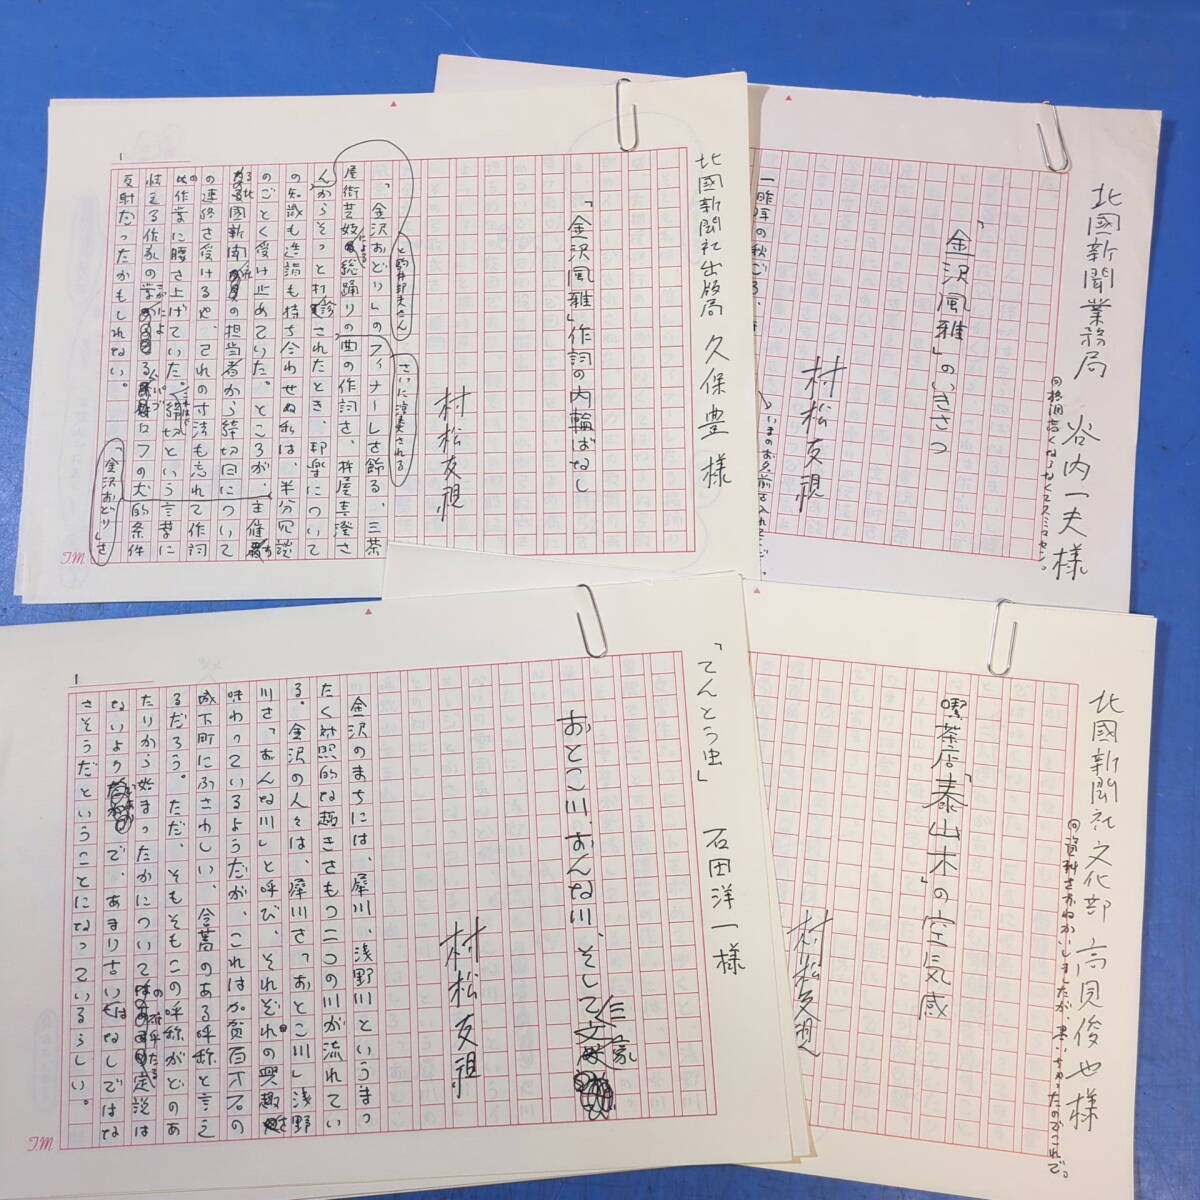 北國新聞社出版局 久保豊様
「金沢風雅」作詞の内輪ばなし
村松友視
「金沢おどり」のフィナーレを飾る、三茶
と駒井邦夫さん
さいに演奏される
屋街芸妓による総踊りの曲の作詞を、杵屋喜澄さ
んからそっと打診されたとき、邦楽について
の知識も造詣も持ち合わせぬ私は、半分冗談
のごとく受け止めていた。ところが、主催
北國新聞社の担当者から締切日について
の連絡を受けるや、それの寸法も忘れて作詞
の作業に腰を上げていた。締切という言葉に
怯える作家の
パブロフの犬的条件
反射だったかもしれない。
「金沢おどり」を
1
T.M.
北國新聞業務局 谷内一夫様
「金沢風雅」のいきさつ
村松友視
一昨年の秋ごろ、
「てんとう虫」 石田洋一様
おとこ川、おんな川、そして
村松友視
金沢のまちには、犀川、浅野川というまっ
たく対照的な趣きをもつ二つの川が流れてい
る。金沢の人々は、犀川を「おとこ川」浅野
川を「おんな川」と呼び、それぞれの興趣を
味わっているようだが、これは加賀百万石の
城下町にふさわしい、含蓄のある呼称と言え
るだろう。ただ、そもそもこの呼称がどのあ
たりから始まったかについての確乎たる定説は
ないようで、あまり古いはなしではな
さそうだということになっているらしい。
1
T.M.
北國新聞社文化部 高見俊也様
喫茶店「泰山木」の空気感
村松友視